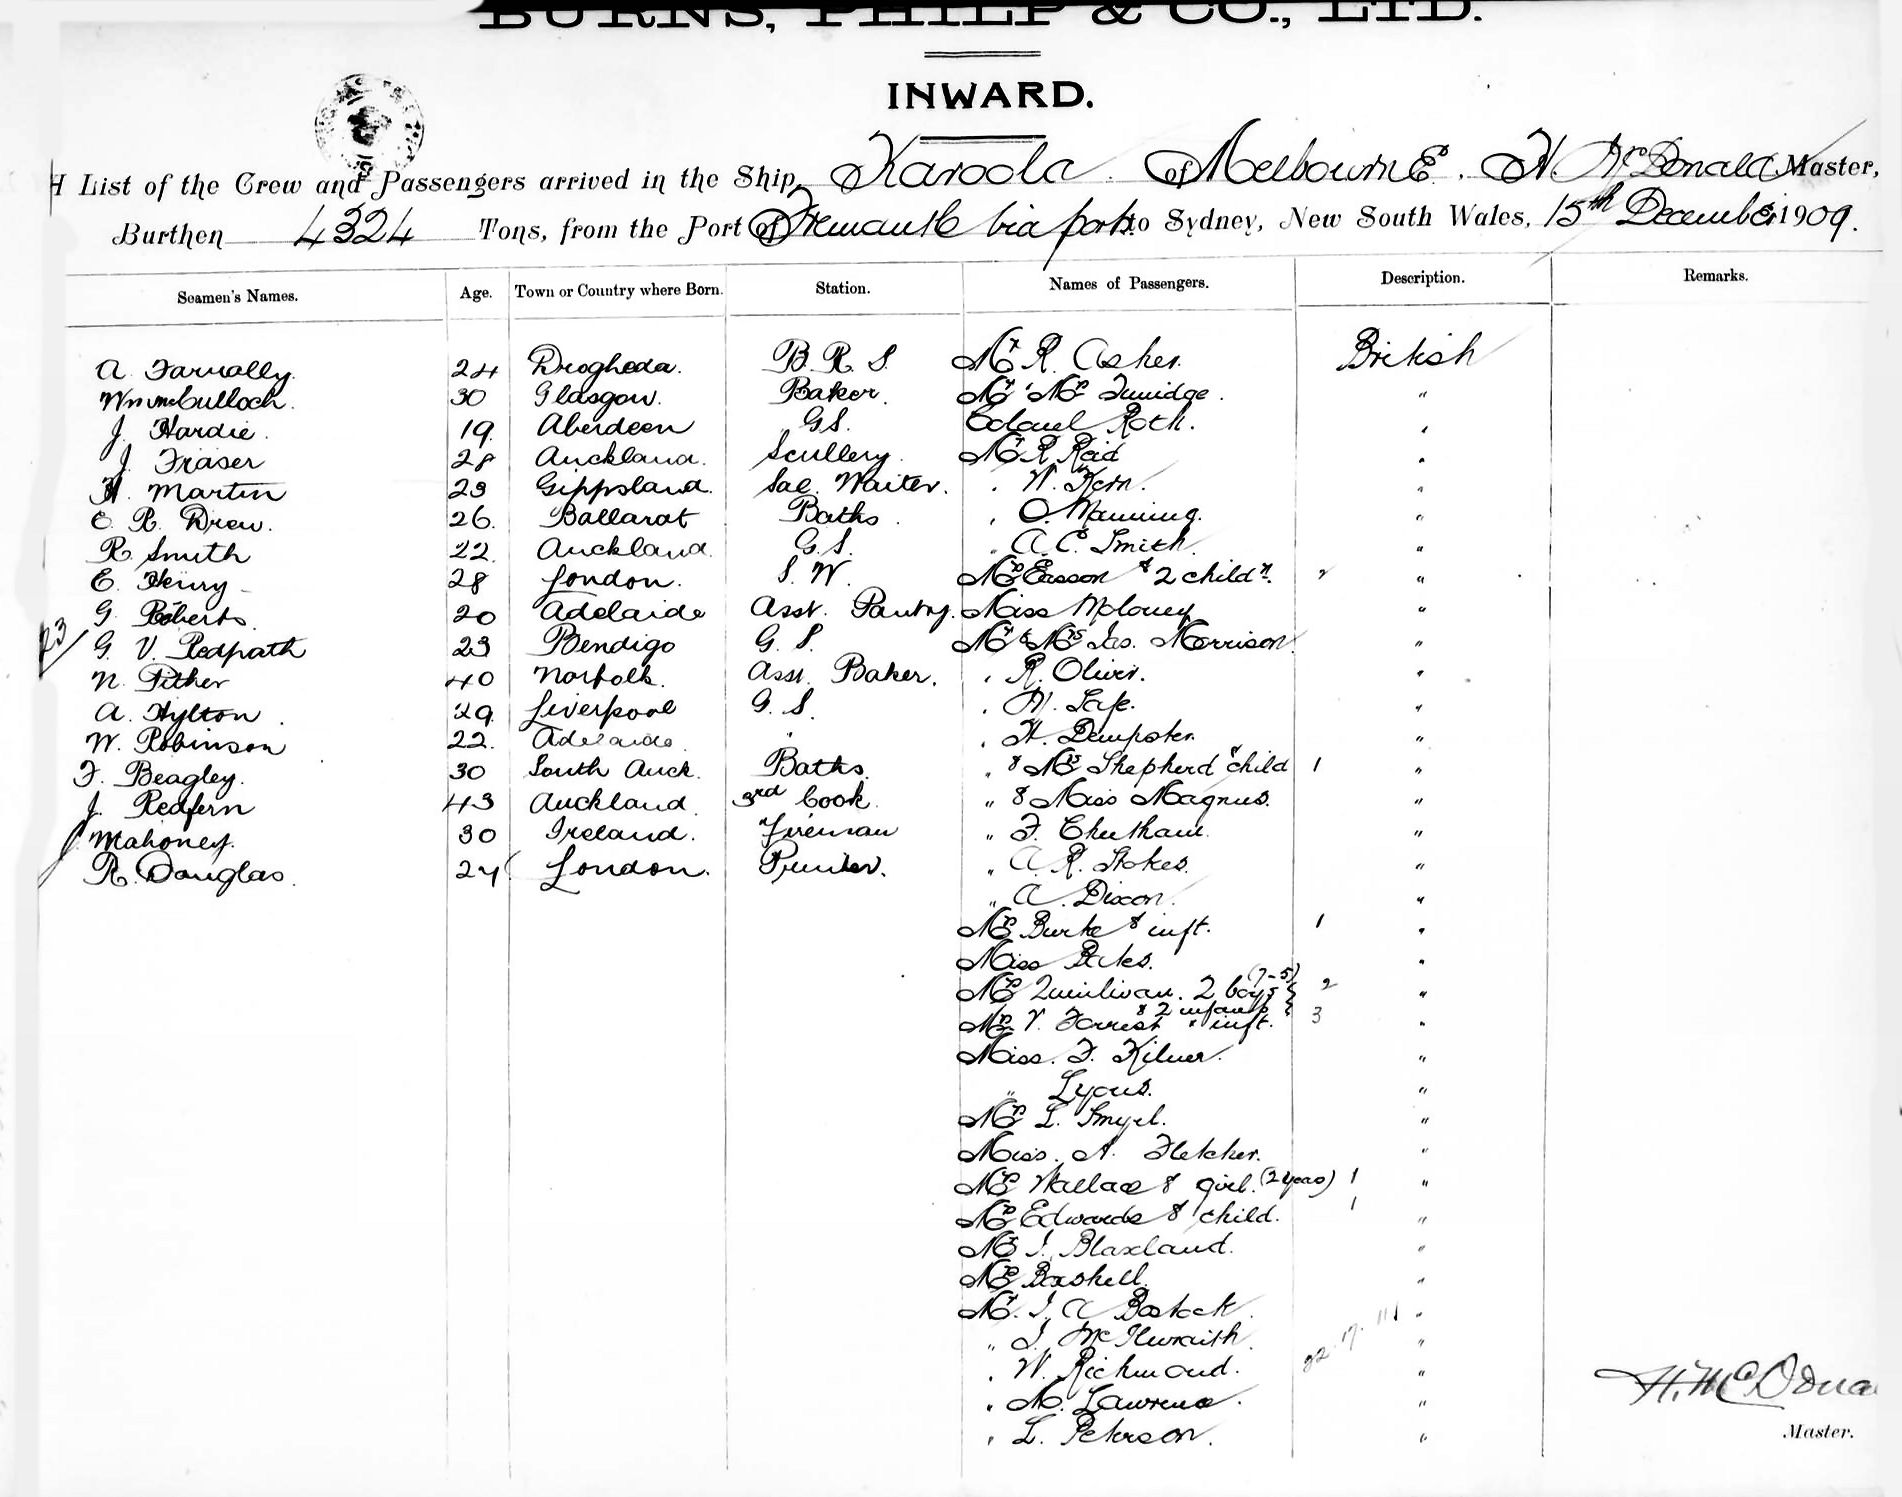 BURNS, PHILP & CO., LTD.
INWARD.
A List of the Crew and Passengers arrived in the Ship Karoola of Melbourne. H. McDonald Master,
Burthen 4324 Tons, from the Port of Fremantle via ports to Sydney, New South Wales, 15th December 1909.
Seamen's Names. Age. Town or Country where Born. Station. Names of Passengers. Description. Remarks.
A. Farnally. 24 Drogheda. B. R. S. Mr R. Asher. British
Wm McCulloch. 30 Glasgow. Baker. Mr & Mrs "
J. Hardie. 19. Aberdeen G S. Colonel Roth. "
J. Fraser 28 Auckland. Scullery. Mr R Reid "
H. Martin 23 Gippsland. Sal. Waiter. " W. Kern. "
E. R. Drew. 26. Ballarat Baths. " O. Manning. "
R. Smith 22. Auckland. G. S. " A. E. Smith. "
E. Henry 28 London. S. W. Mrs Easson & 2 childn. 2 "
G. Roberts. 20 Adelaide Asst. Pantry. Miss Moloney "
23 G. V. Redpath 23 Bendigo G. S. Mr & Mrs Jas. Morrison "
N. Pither 40 Norfolk. Asst. Baker. " R. Oliver. "
A. Hylton. 29. Liverpool G. S. "
W. Robinson 22. Adelaide. " " H. Dempster. "
F. Beagley. 30 South Auck. Baths. " & Mrs Shepherd & child 1 "
J. Redfern 43 Auckland. 3rd Cook. " & Miss Magnus. "
J. Mahoney. 30 Ireland. Fireman " F. "
R. Douglas. 24 London. " A. R. Stokes. "
" A. Dixon. "
Mrs Burke & inft. 1 "
Miss "
Mrs Quinlivan. 2 boys (7-5) 2 "
& 2 infants
Mrs V. Forrest & inft. 3 "
Miss. F. Kilner. "
" Lyons. "
Mrs L. "
Miss. A. Fletcher. "
Mrs Wallace & girl. (2 years) 1 "
Mrs Edwards & child. 1 "
Mr J. Blaxland. "
Mrs Boxshell. "
Mr. J. A Bostock. "
" J. McIlwraith. "
" W. Richmond. 22. 17. 111 "
" M. Lawrence. "
" L. Peterson. "
H. McDona
Master.